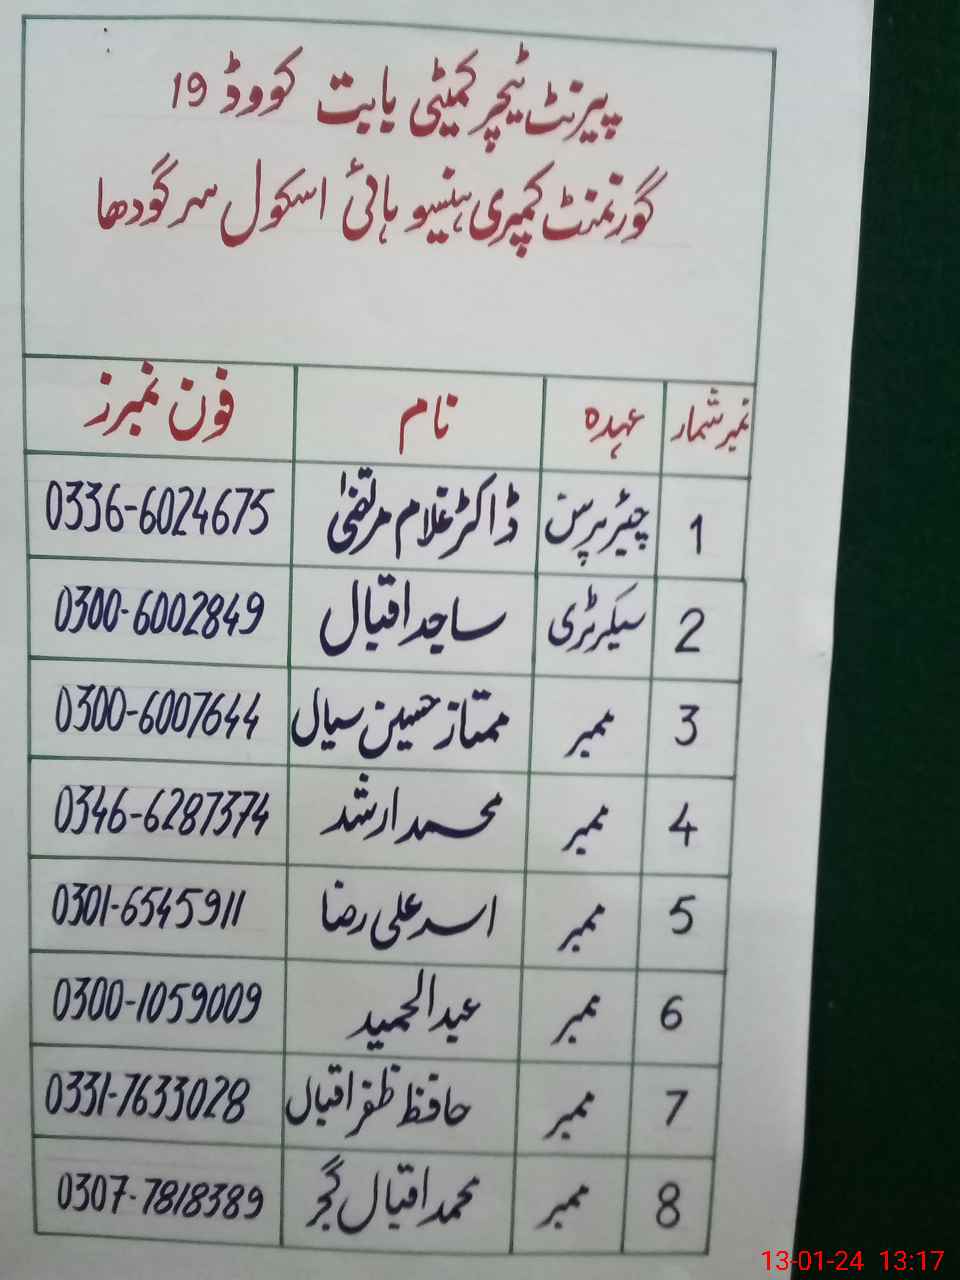 پیرنٹ ٹیچر کمیٹی بابت کووڈ 19
گورنمنٹ کمپری ہنسیو ہائی اسکول سرگودھا
نمبر شمار عہدہ نام فون نمبرز
1 چیئرپرسن ڈاکٹر غلام مرتضیٰ 0336-6024675
2 سیکرٹری ساجد اقبال 0300-6002849
3 ممبر ممتاز حسین سیال 0300-6007644
4 ممبر محمد ارشد 0346-6287374
5 ممبر اسد علی رضا 0301-6545911
6 ممبر عبدالحمید 0300-1059009
7 ممبر حافظ ظفر اقبال 0331-7633028
8 ممبر محمد اقبال گجر 0307-7818389
13-01-24 13:17